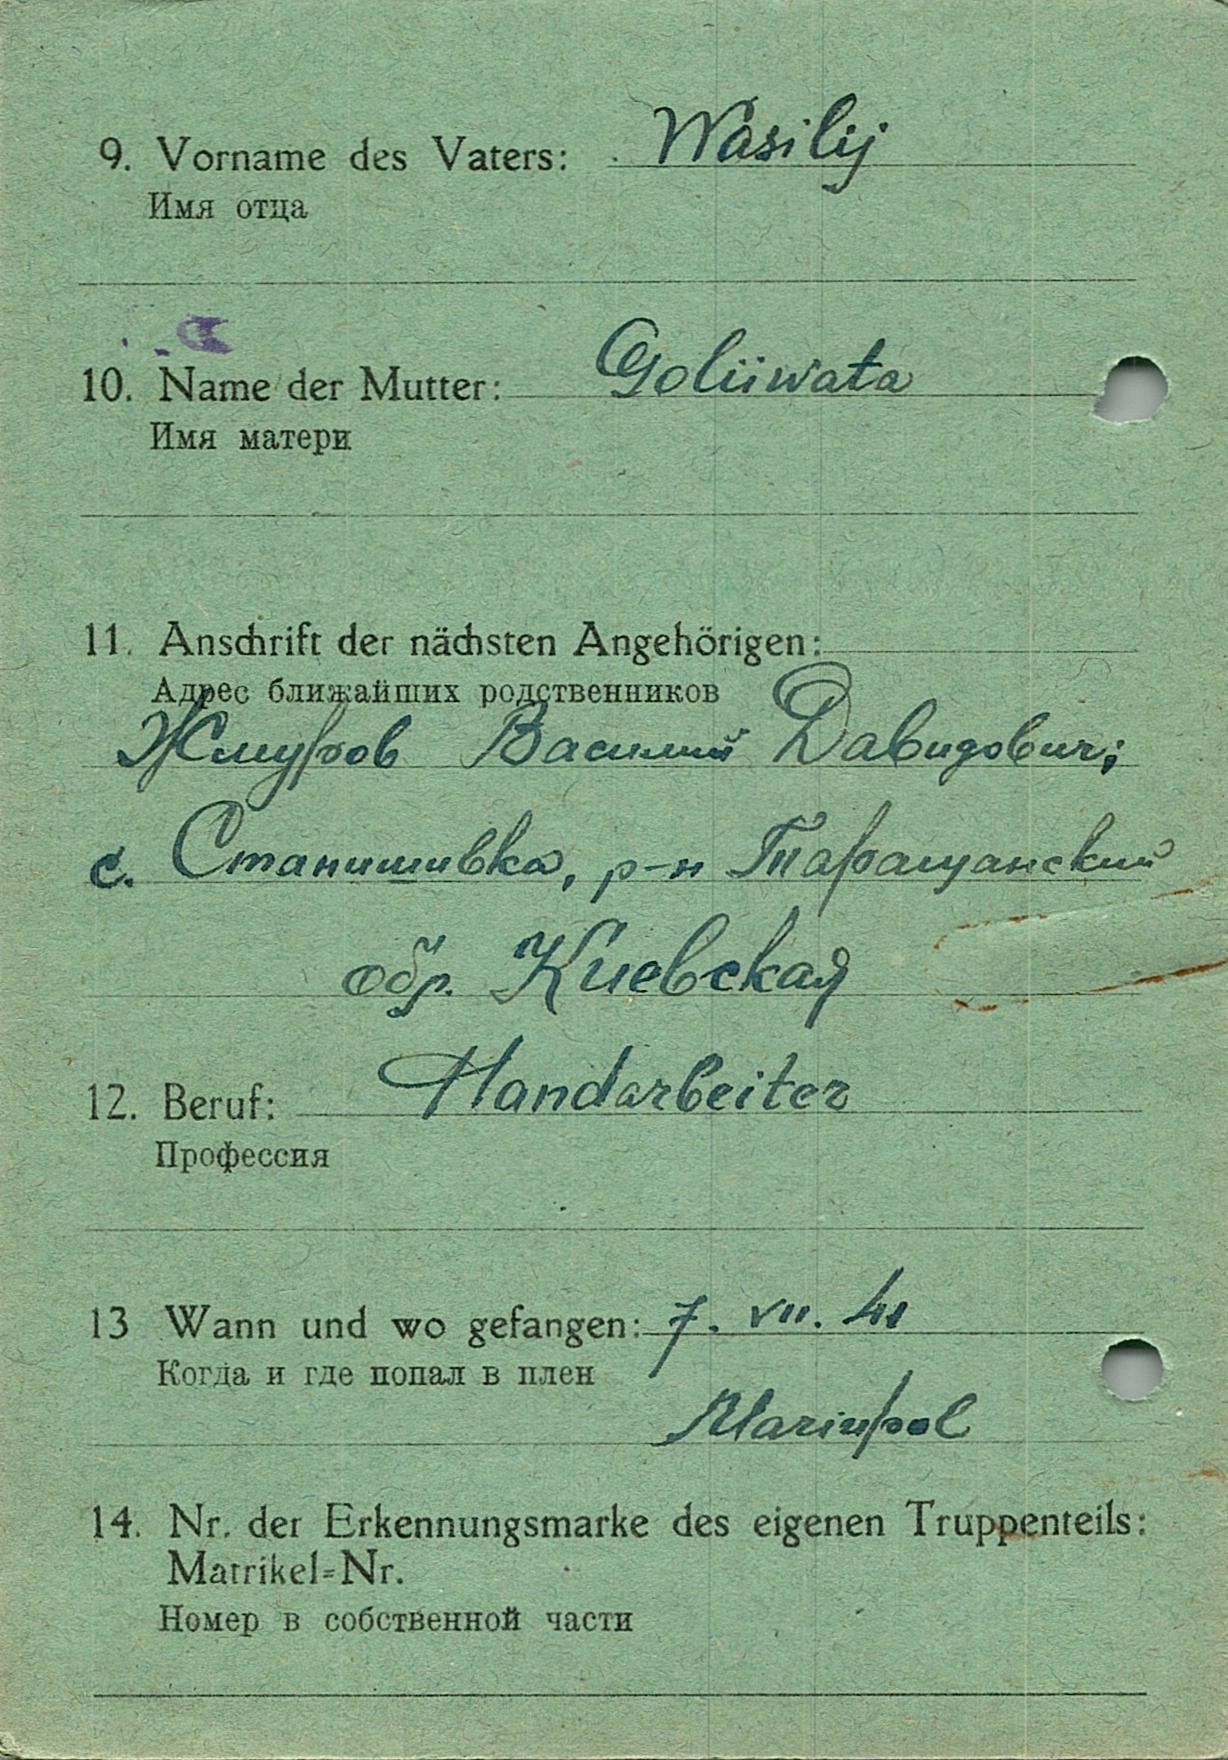 9. Vorname des Vaters: Wasilij
Имя отца
10. Name der Mutter: Goliiwata
Имя матери
11. Anschrift der nächsten Angehörigen:
Адрес ближайших родственников
Жмуров Василий Давидович;
с. Станишивка, р-н Таращанский
обл. Киевская
12. Beruf: Handarbeiter
Профессия
13 Wann und wo gefangen: 7. VII. 41
Когда и где попал в плен
Mariupol
14. Nr. der Erkennungsmarke des eigenen Truppenteils:
Matrikel=Nr.
Номер в собственной части